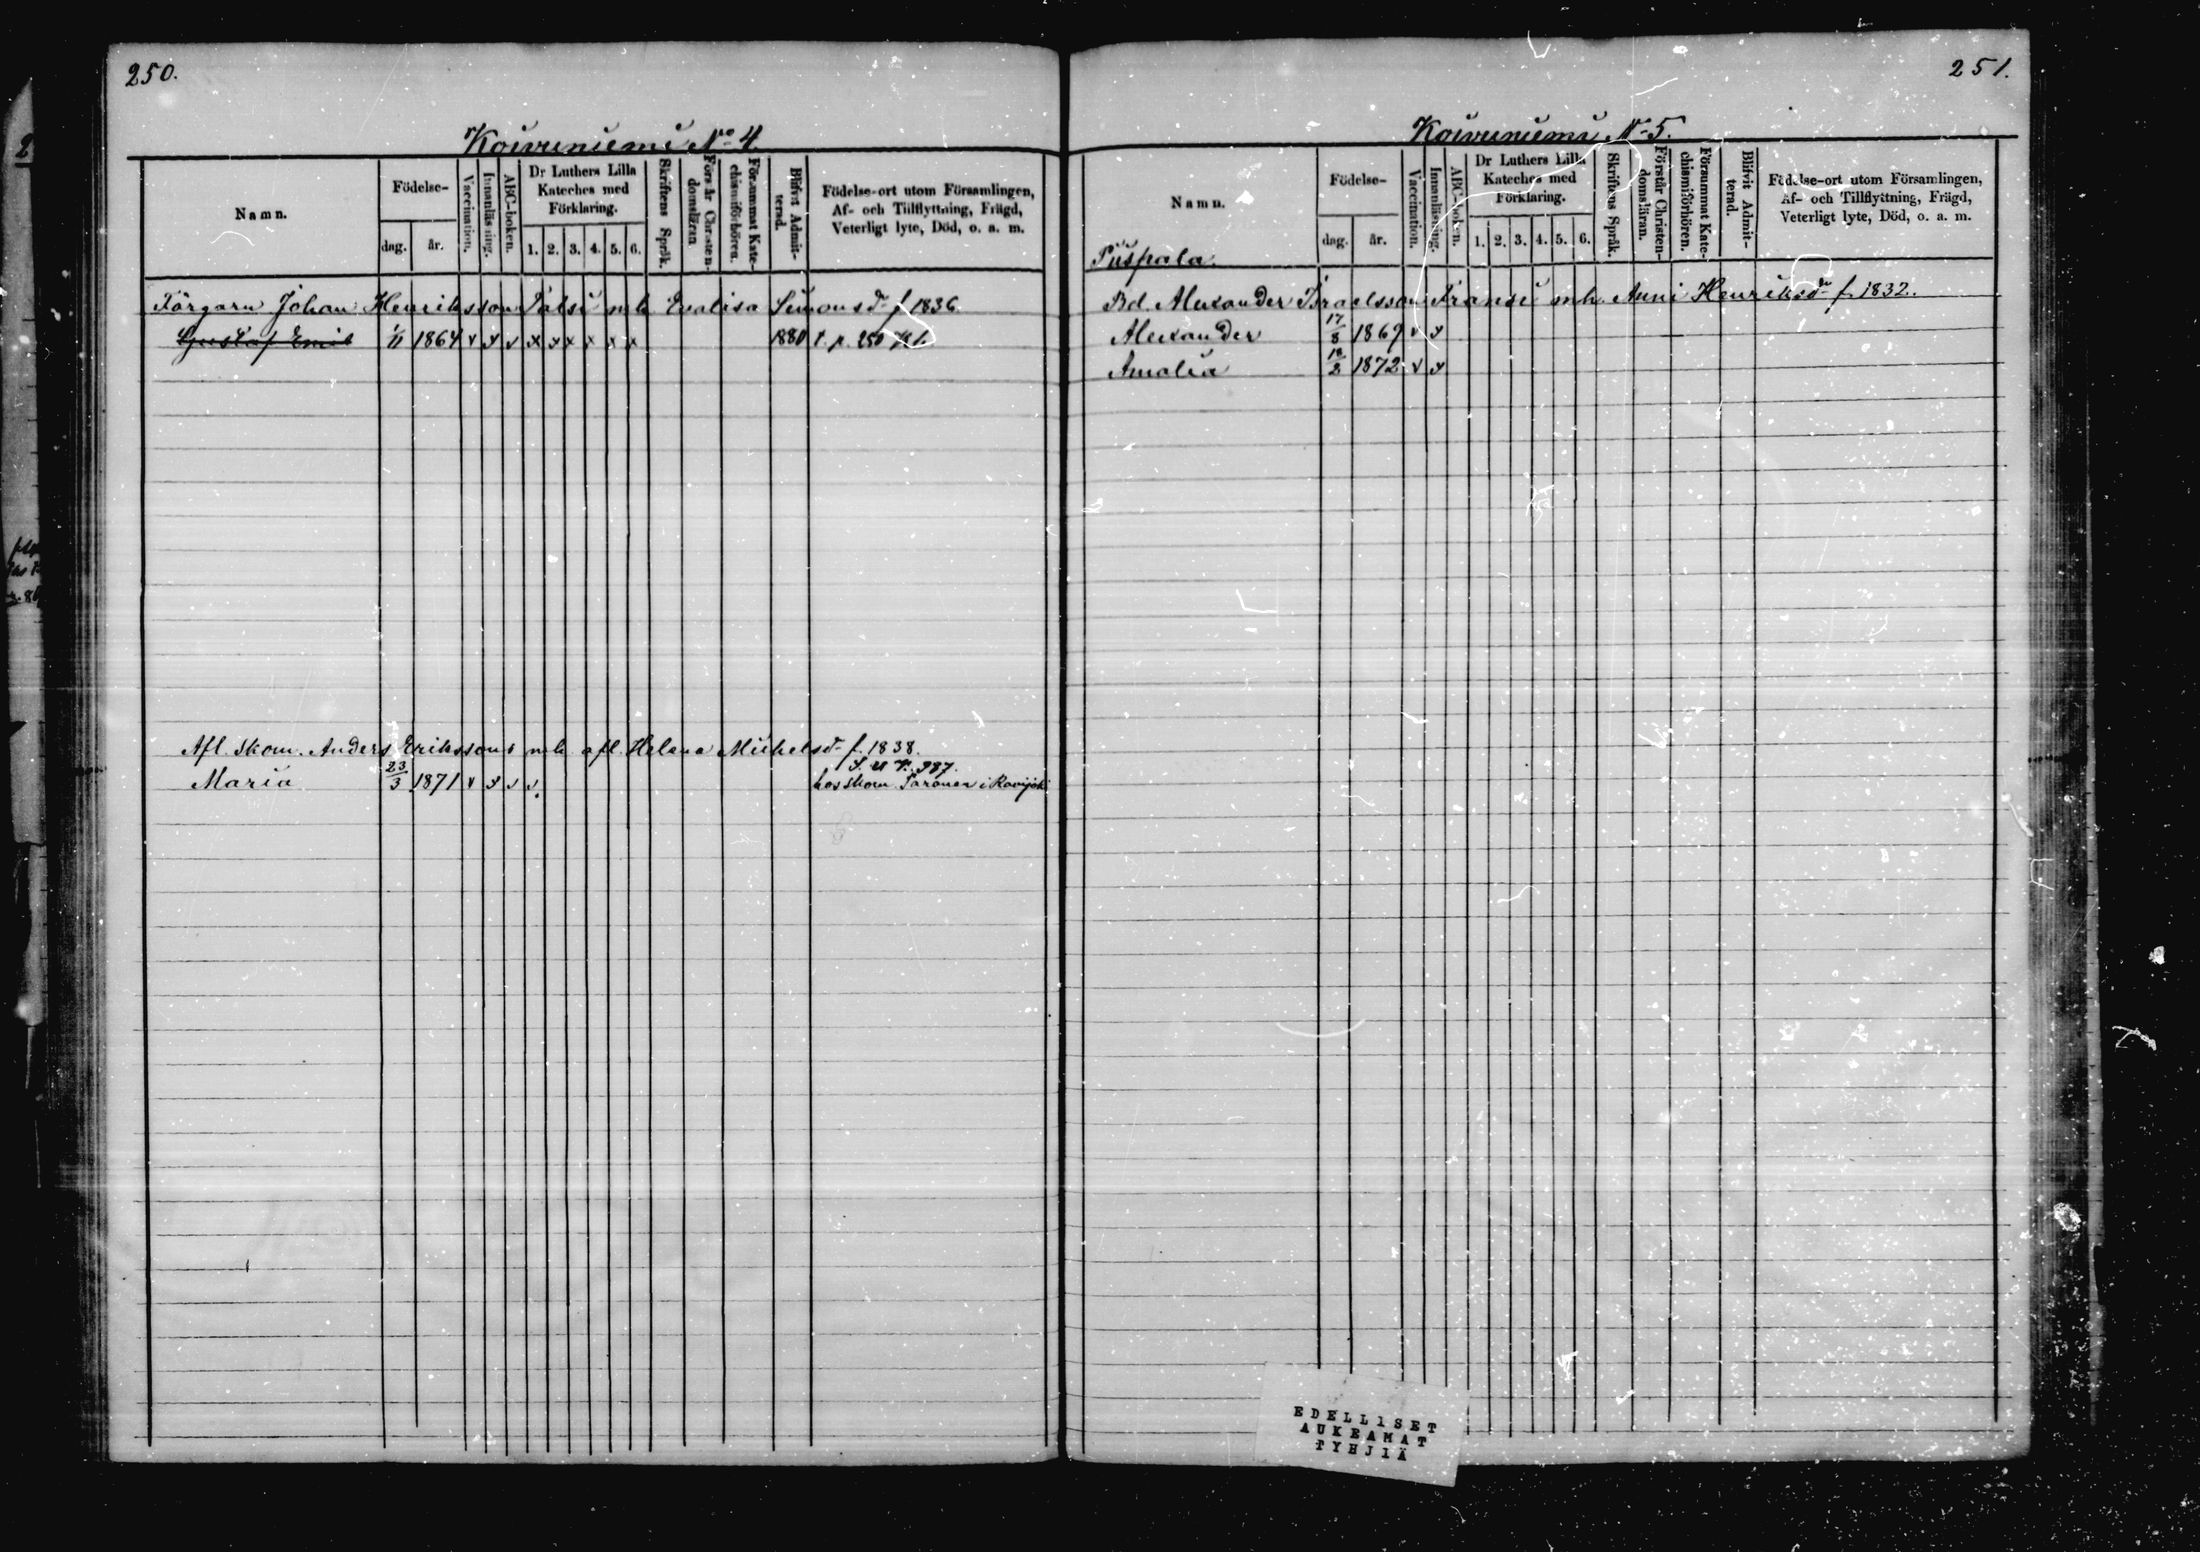 250.
Koivuniemi No 4.
Namn.
Födelse-
dag.
år.
Vaccination.
Innanläsning.
ABC-boken.
Dr Luthers Lilla
Kateches med
Förklaring.
1. 2. 3. 4. 5. 6.
Skriftens Språk.
Förstår Christen-
domsläran.
Försummat Kate-
chismiförhören.
Blifvit Admit-
terad.
Födelse-ort utom Församlingen,
Af- och Tillflyttning, Frägd,
Veterligt lyte, Död, o. a. m.
Färgarn Johan Henriksson Patsi mh Evalisa Simonsdr f 1836.
Gustaf Emil 1/11 1864 v v v x x x x x x 1880 t. p. 250
Afl. Skom. Anders Erikssons mh. afl. Helena Michelsdr f. 1838.
Maria 23/3 1871 v v v v
hos Skom. i Ravijoki
251.
Koivuniemi No 5.
Namn.
Födelse-
dag.
år.
Vaccination.
Innanläsning.
ABC-boken.
Dr Luthers Lilla
Kateches med
Förklaring.
1. 2. 3. 4. 5. 6.
Skriftens Språk.
Förstår Christen-
domsläran.
Försummat Kate-
chismiförhören.
Blifvit Admit-
terad.
Födelse-ort utom Församlingen,
Af- och Tillflyttning, Frägd,
Veterligt lyte, Död, o. a. m.
Piispala.
Bd. Alexander Israelsson Fransi mh. Anni Henriksdr f. 1832.
Alexander 17/8 1869 v v
Amalia 18/2 1872 v v
EDELLISET
AUKEAMAT
TYHJIÄ